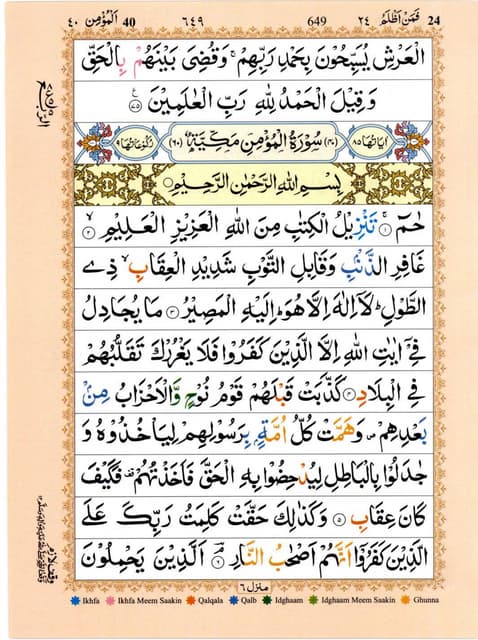 24 فَمَنْ اَظْلَمُ ٢٤ 649 ٦٤٩ 40 اَلْمُؤْمِن ٤٠
الْعَرْشِ يُسَبِّحُوْنَ بِحَمْدِ رَبِّهِمْ ۚ وَقُضِيَ بَيْنَهُمْ بِالْحَقِّ
وَ قِيْلَ الْحَمْدُ لِلّٰهِ رَبِّ الْعٰلَمِيْنَ ﴿٧٥﴾
اٰيَاتُهَا ٨٥ (٤٠) سُوْرَةُ الْمُؤْمِنِ مَكِّيَّةٌ (٦٠) رُكُوْعَاتُهَا ٩
بِسْمِ اللّٰهِ الرَّحْمٰنِ الرَّحِيْمِ
حٰمٓ ﴿١﴾ تَنْزِيْلُ الْكِتٰبِ مِنَ اللّٰهِ الْعَزِيْزِ الْعَلِيْمِ ﴿٢﴾
غَافِرِ الذَّنْۢبِ وَقَابِلِ التَّوْبِ شَدِيْدِ الْعِقَابِ ۙ ذِي
الطَّوْلِ ؕ لَاۤ اِلٰهَ اِلَّا هُوَ ؕ اِلَيْهِ الْمَصِيْرُ ﴿٣﴾ مَا يُجَادِلُ
فِيْۤ اٰيٰتِ اللّٰهِ اِلَّا الَّذِيْنَ كَفَرُوْا فَلَا يَغْرُرْكَ تَقَلُّبُهُمْ
فِي الْبِلَادِ ﴿٤﴾ كَذَّبَتْ قَبْلَهُمْ قَوْمُ نُوْحٍ وَّالْاَحْزَابُ مِنْۢ
بَعْدِهِمْ ۪ وَهَمَّتْ كُلُّ اُمَّةٍۭ بِرَسُوْلِهِمْ لِيَاْخُذُوْهُ وَ
جٰدَلُوْا بِالْبَاطِلِ لِيُدْحِضُوْا بِهِ الْحَقَّ فَاَخَذْتُهُمْ ۟ فَكَيْفَ
كَانَ عِقَابِ ﴿٥﴾ وَكَذٰلِكَ حَقَّتْ كَلِمَتُ رَبِّكَ عَلَي
الَّذِيْنَ كَفَرُوْۤا اَنَّهُمْ اَصْحٰبُ النَّارِ ﴿٦﴾ اَلَّذِيْنَ يَحْمِلُوْنَ
منزل ٦
Ikhfa Ikhfa Meem Saakin Qalqala Qalb Idghaam Idghaam Meem Saakin Ghunna